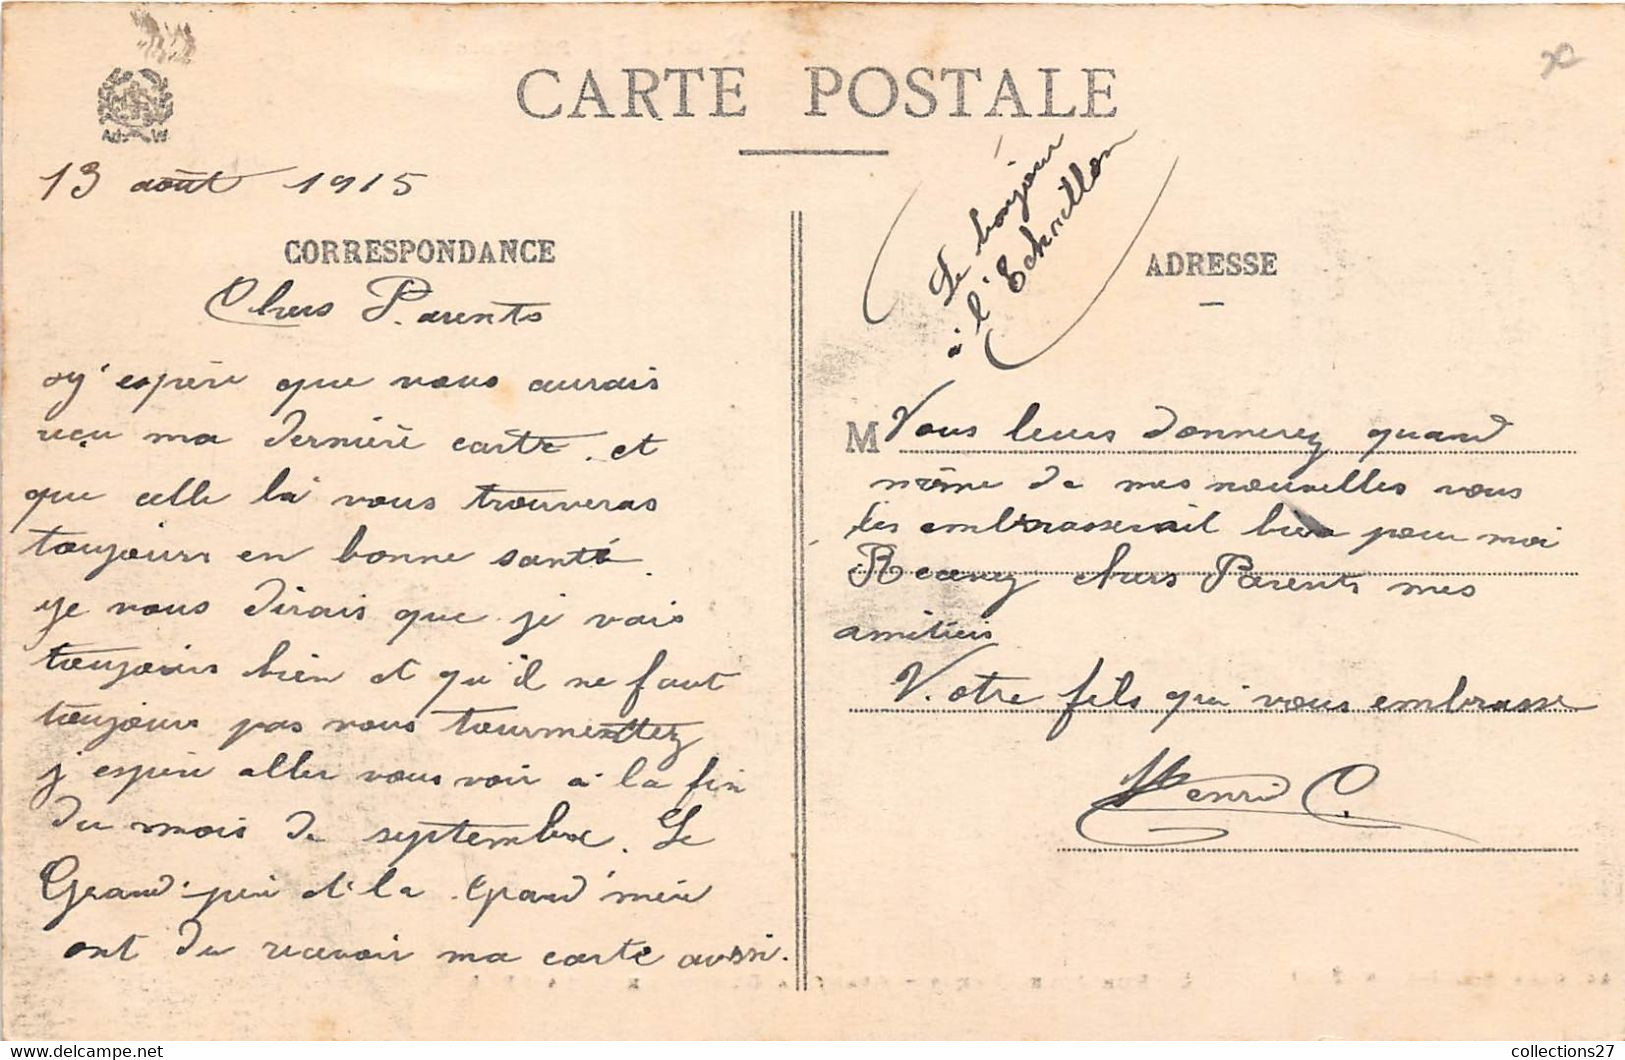 CARTE POSTALE
13 août 1915
CORRESPONDANCE
Chers Parents
J'espère que vous aurais
reçu ma dernière carte. et
que celle la vous trouveras
toujours en bonne santé.
Je vous dirais que je vais
toujours bien et qu'il ne faut
toujours pas vous tourmenttez
j'espère aller vous voir a la fin
du mois de septembre. Le
Grand-père et la Grand'mère
ont du recevoir ma carte aussi.
Le bonjour
à l'Echantillon
ADRESSE
M Vous leurs donnerez quand
même de mes nouvelles vous
les embrasserait bien pour moi
Recevez chers Parents mes
amitiés
Votre fils qui vous embrasse
Henri C.
collections27